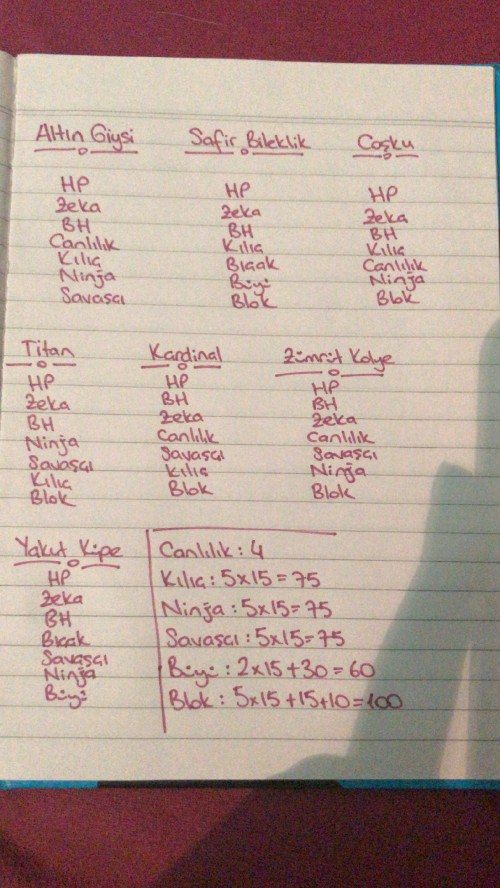 Altın Giysi
HP
Zeka
BH
Canlılık
Kılıç
Ninja
Savaşçı
Safir Bileklik
HP
Zeka
BH
Kılıç
Bıçak
Büyü
Blok
Coşku
HP
Zeka
BH
Kılıç
Canlılık
Ninja
Blok
Titan
HP
Zeka
BH
Ninja
Savaşçı
Kılıç
Blok
Kardinal
HP
BH
Zeka
Canlılık
Savaşçı
Kılıç
Blok
Zümrüt Kolye
HP
BH
Zeka
Canlılık
Savaşçı
Ninja
Blok
Yakut Küpe
HP
Zeka
BH
Bıçak
Savaşçı
Ninja
Büyü
Canlılık : 4
Kılıç : 5x15=75
Ninja : 5x15=75
Savaşçı : 5x15=75
Büyü : 2x15+30=60
Blok : 5x15+15+10=100